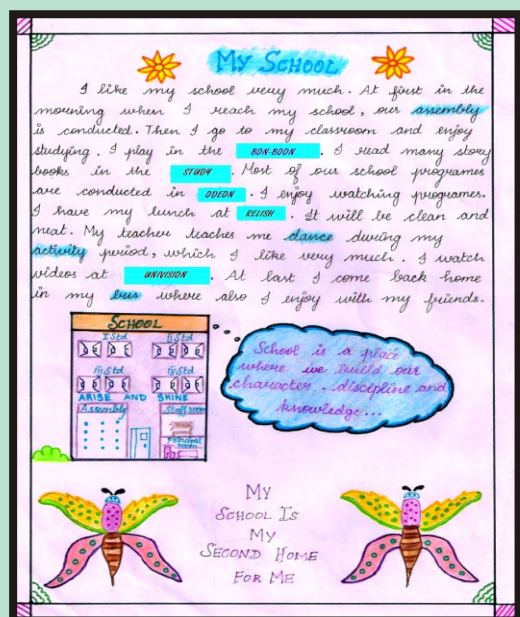 MY SCHOOL
I like my school very much. At first in the
morning when I reach my school, our assembly
is conducted. Then I go to my classroom and enjoy
studying. I play in the BON-BOON. I read many story
books in the STUDY. Most of our school programes
are conducted in ODEON. I enjoy watching programes.
I have my lunch at RELISH. It will be clean and
neat. My teacher teaches me dance during my
activity period, which I like very much. I watch
videos at UNIVISION. At last I come back home
in my bus where also I enjoy with my friends.
SCHOOL
I Std II Std
III Std IV Std
ARISE AND SHINE
Assembly Staff room
Principal room
School is a place
where we build our
character, discipline and
knowledge...
MY
SCHOOL IS
MY
SECOND HOME
FOR ME